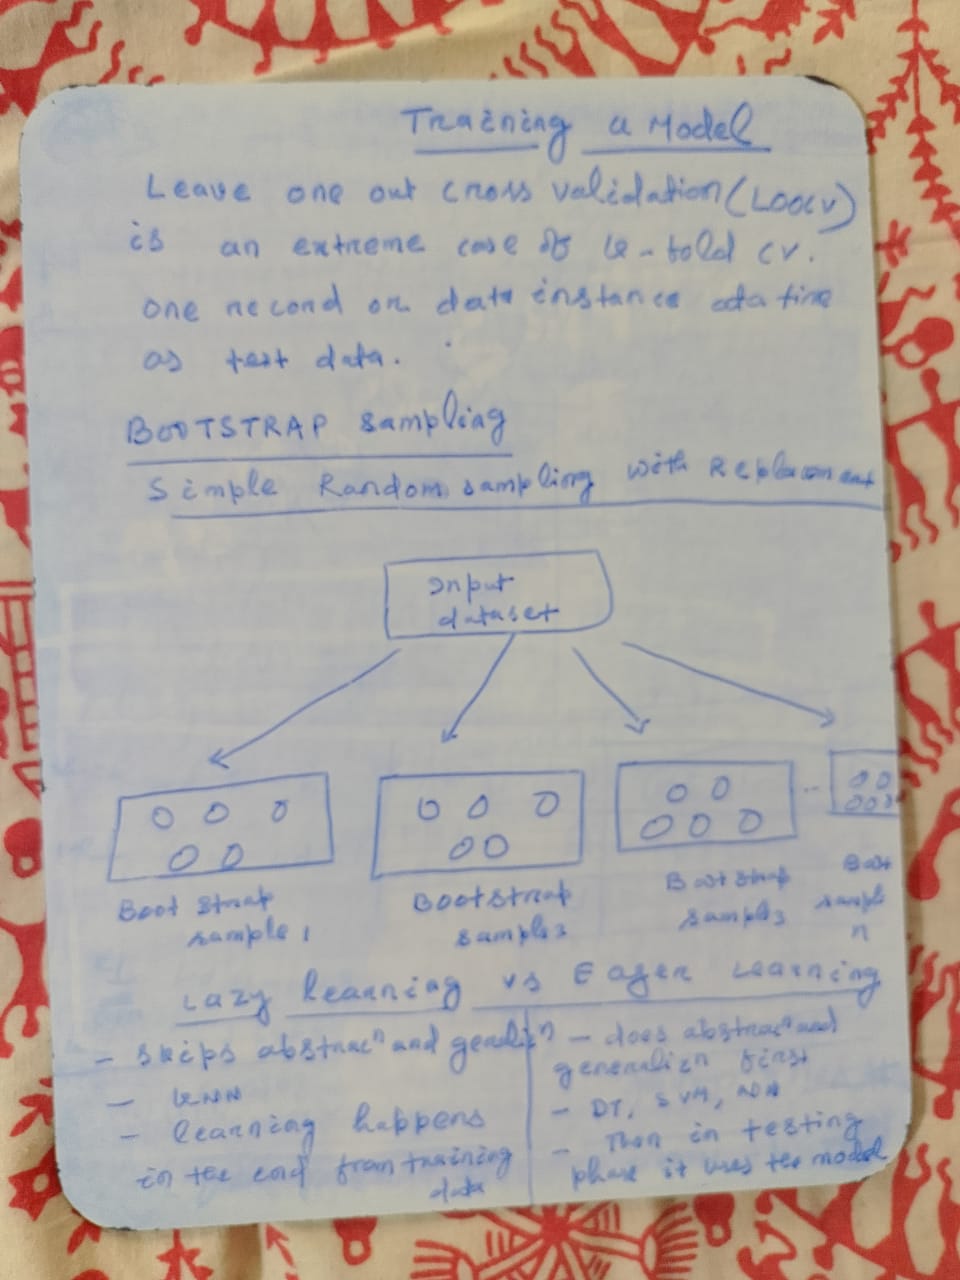 Training a Model
Leave one out cross validation (LOOCV)
is an extreme case of k-fold cv.
one record or data instance at a time
as test data.
BOOTSTRAP sampling
Simple Random sampling with Replacement
Input
dataset
Bootstrap
sample 1
Bootstrap
sample
Bootstrap
sample 3
Boot
sample
n
Lazy learning vs Eager Learning
- skips abstracn and
- KNN
- learning happens
in the end from training
data
- does abstracn and
generalizn first
- DT, SVM, NN
- Then in testing
phase it uses the model